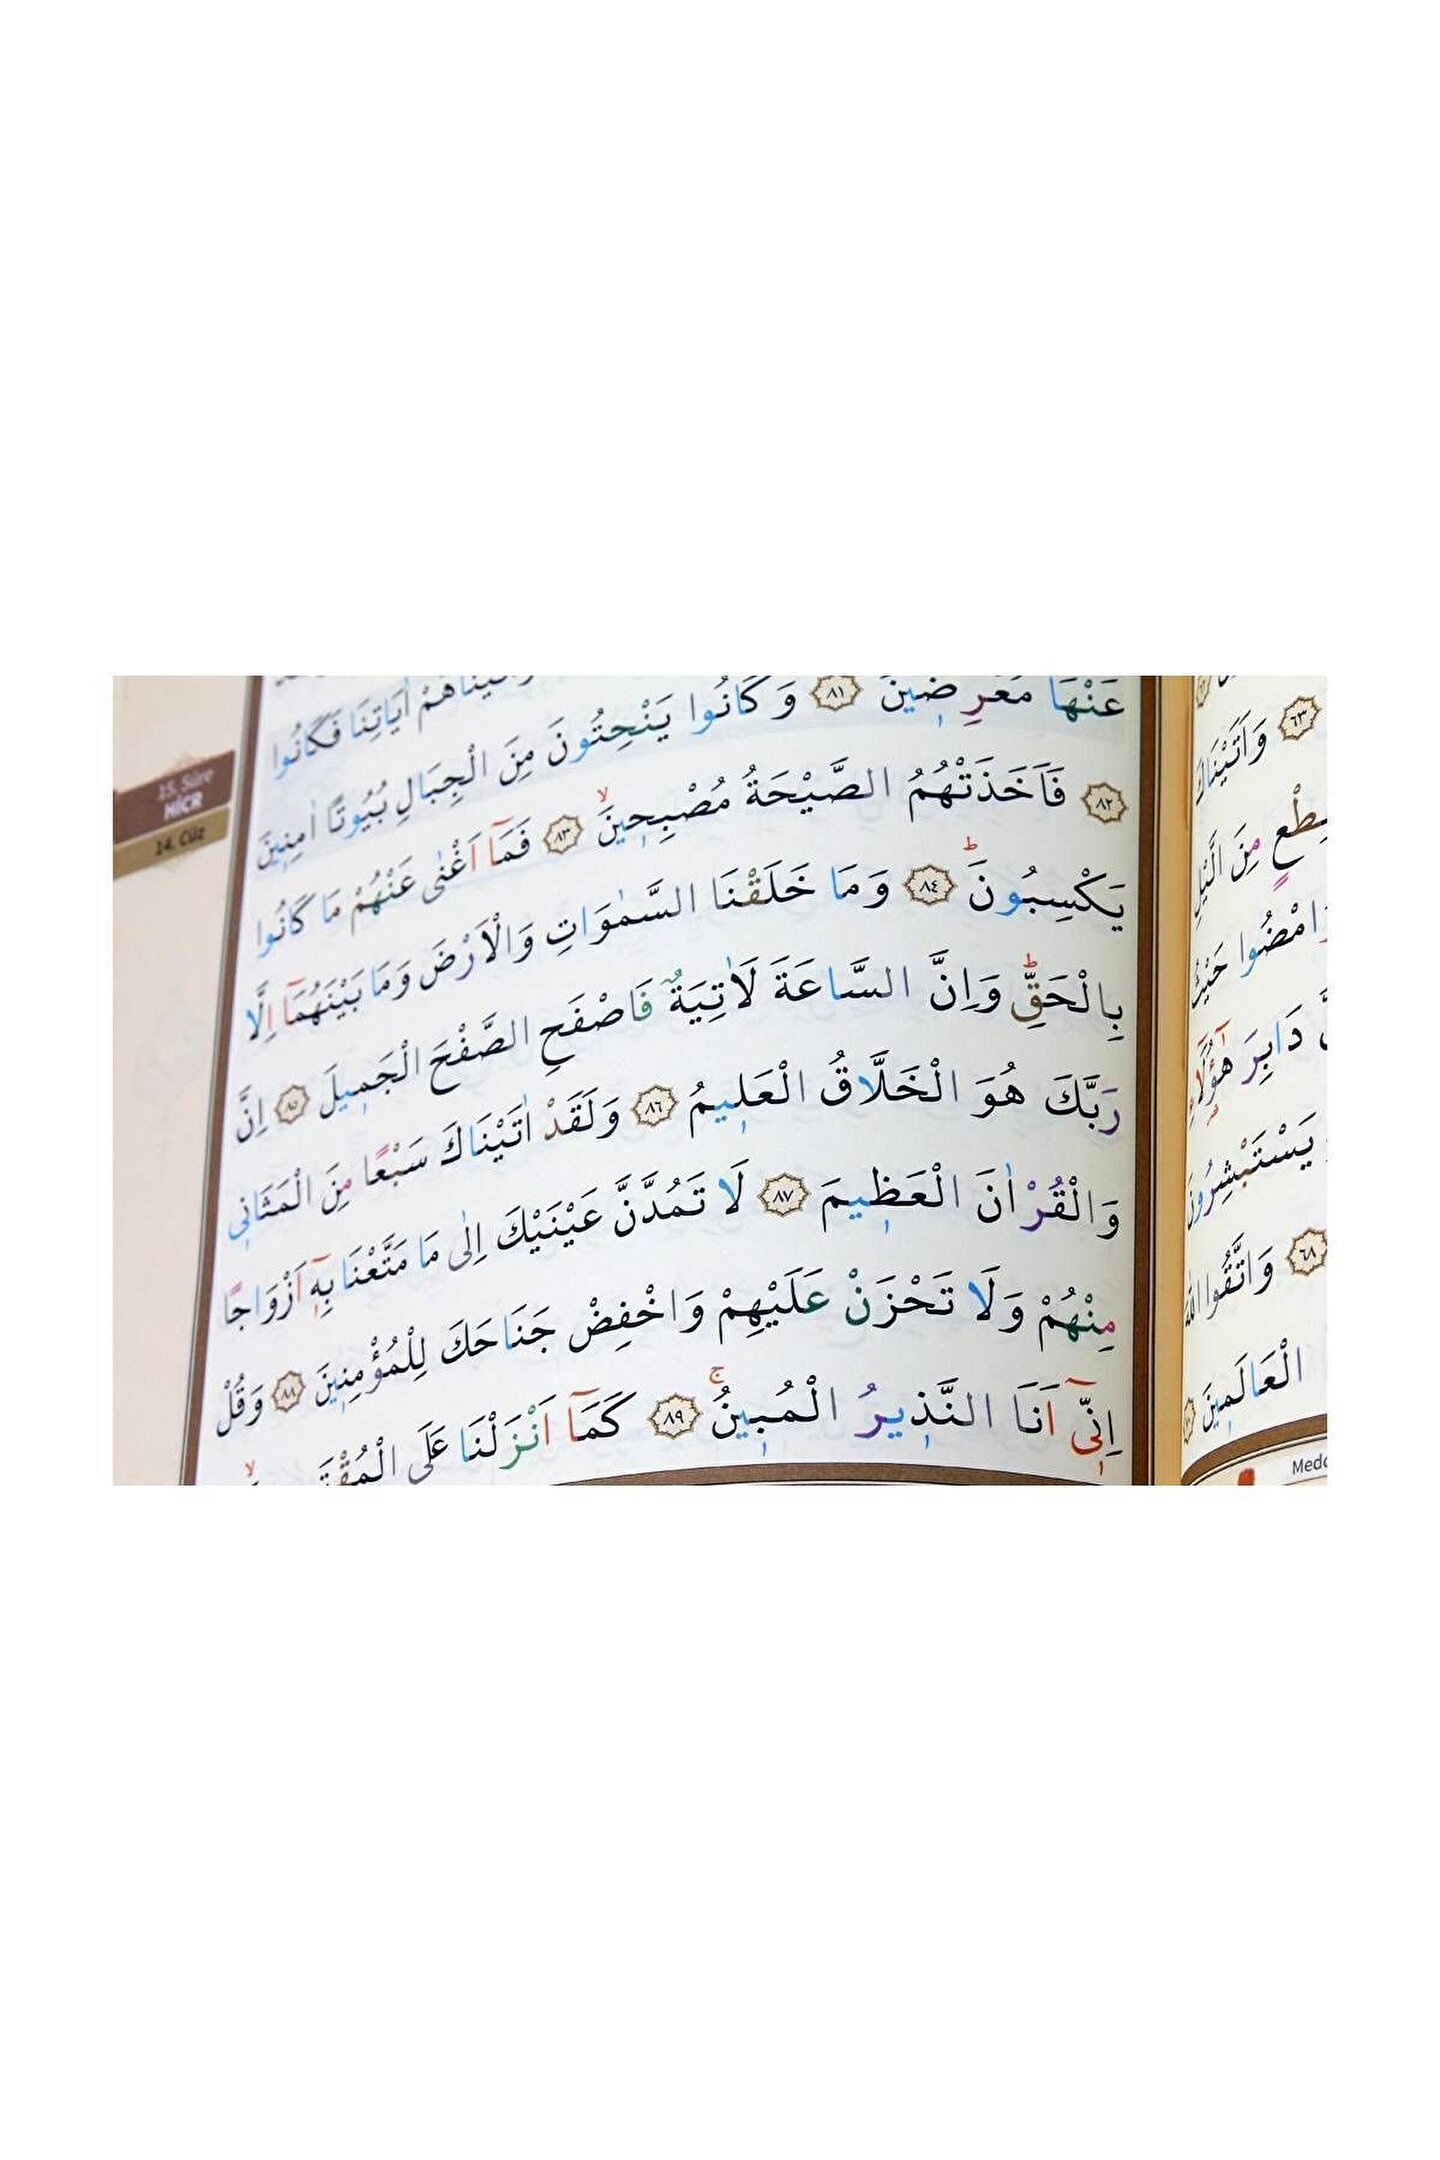 15. Sûre
HİCR
14. Cüz
اٰيَاتِنَا فَكَانُوا
عَنْهَا مُعْرِضٖينَ ﴿٨١﴾ وَكَانُوا يَنْحِتُونَ مِنَ الْجِبَالِ بُيُوتًا اٰمِنٖينَ
﴿٨٢﴾ فَاَخَذَتْهُمُ الصَّيْحَةُ مُصْبِحٖينَۙ ﴿٨٣﴾ فَمَٓا اَغْنٰى عَنْهُمْ مَا كَانُوا
يَكْسِبُونَؕ ﴿٨٤﴾ وَمَا خَلَقْنَا السَّمٰوَاتِ وَالْاَرْضَ وَمَا بَيْنَهُمَٓا اِلَّا
بِالْحَقِّؕ وَاِنَّ السَّاعَةَ لَاٰتِيَةٌ فَاصْفَحِ الصَّفْحَ الْجَمٖيلَ ﴿٨٥﴾ اِنَّ
رَبَّكَ هُوَ الْخَلَّاقُ الْعَلٖيمُ ﴿٨٦﴾ وَلَقَدْ اٰتَيْنَاكَ سَبْعًا مِنَ الْمَثَانٖى
وَالْقُرْاٰنَ الْعَظٖيمَ ﴿٨٧﴾ لَا تَمُدَّنَّ عَيْنَيْكَ اِلٰى مَا مَتَّعْنَا بِهٖٓ اَزْوَاجًا
مِنْهُمْ وَلَا تَحْزَنْ عَلَيْهِمْ وَاخْفِضْ جَنَاحَكَ لِلْمُؤْمِنٖينَ ﴿٨٨﴾ وَقُلْ
اِنّٖٓى اَنَا النَّذٖيرُ الْمُبٖينُۚ ﴿٨٩﴾ كَمَٓا اَنْزَلْنَا عَلَى
﴿٦٣﴾ وَاَتَيْنَاكَ
مِنَ الَّيْلِ
وَامْضُوا حَيْثُ
دَابِرَ هٰٓؤُلَٓاءِ
يَسْتَبْشِرُونَ
﴿٦٨﴾ وَاتَّقُوا اللّٰهَ
الْعَالَمٖينَ